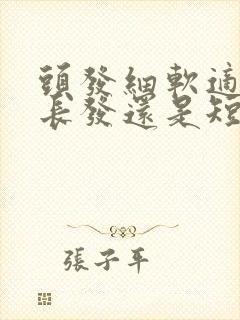 頭發細軟適
長發還是短
張子平